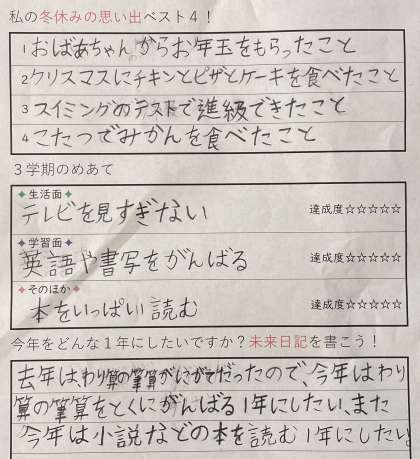 私の冬休みの思い出ベスト4！
1 おばあちゃんからお年玉をもらったこと
2 クリスマスにチキンとピザとケーキを食べたこと
3 スイミングのテストで進級できたこと
4 こたつでみかんを食べたこと
3学期のめあて
✦生活面✦
テレビを見すぎない 達成度☆☆☆☆☆
✦学習面✦
英語や書写をがんばる 達成度☆☆☆☆☆
✦そのほか✦
本をいっぱい読む 達成度☆☆☆☆☆
今年をどんな1年にしたいですか？未来日記を書こう！
去年は、わり算の筆算がにがてだったので、今年はわり
算の筆算をとくにがんばる1年にしたい、また
今年は小説などの本を読む1年にしたい。